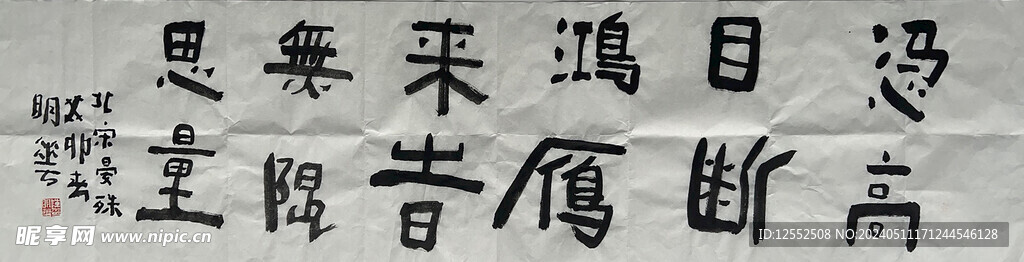 憑高
目断
鴻鴈
来旹
無限
思量
北宋晏殊
癸卯春
明
昵享网 www.nipic.cn
ID:12552508 NO:20240511171244546128